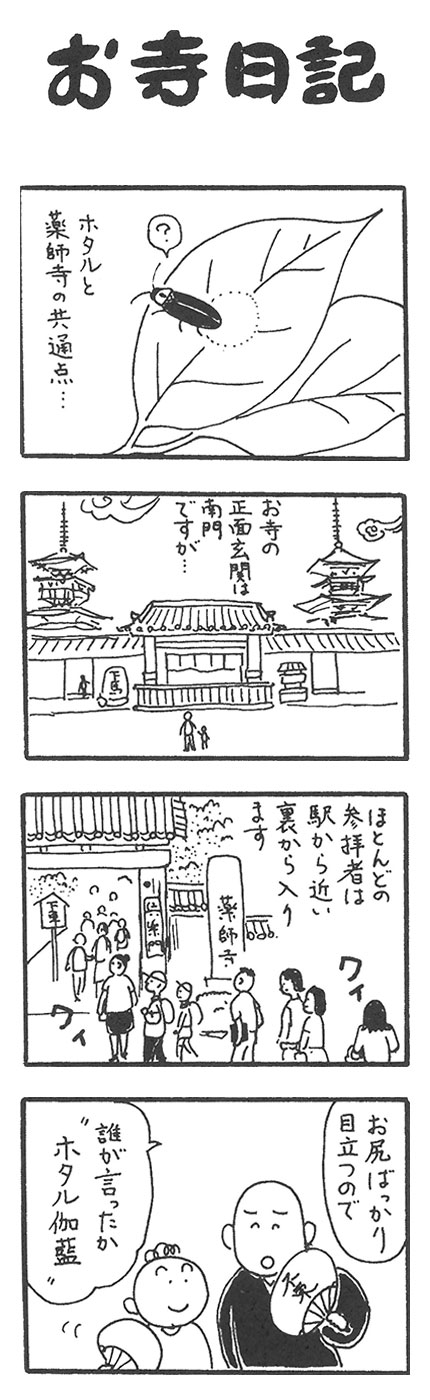 お寺日記
ホタルと
薬師寺の共通点…
?
お寺の
正面玄関は
南門
ですが…
下馬
ほとんどの
参拝者は
駅から近い
裏から入り
ます
薬師寺
下車
ワィ
ワィ
お尻ばっかり
目立つので
誰が言ったか
"ホタル伽藍"